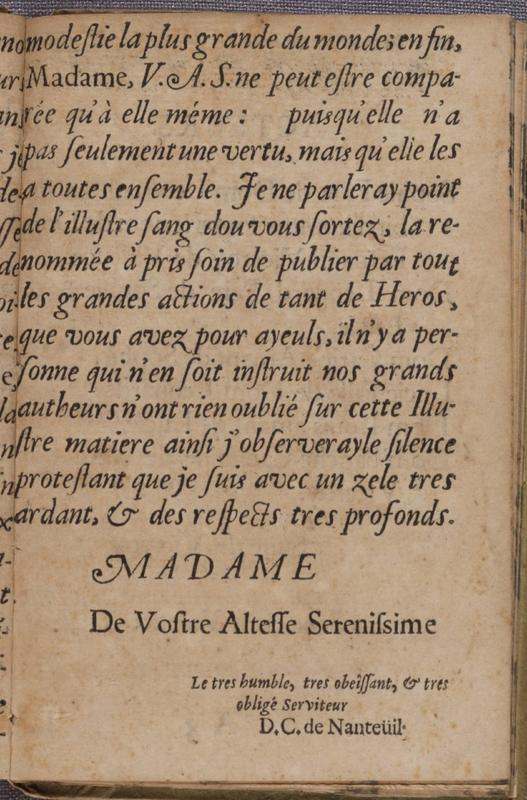 modeſtie la plus grande du monde; enfin,
Madame, V. A. S. ne peut eſtre compa-
rée qu'à elle méme : puisqu'elle n'a
pas ſeulement une vertu, mais qu'elle les
a toutes enſemble. Je ne parleray point
de l'illuſtre ſang dou vous ſortez, la re-
nommée à pris ſoin de publier par tout
les grandes actions de tant de Heros,
que vous avez pour ayeuls, il n'y a per-
ſonne qui n'en ſoit inſtruit nos grands
autheurs n'ont rien oublié ſur cette Illu-
ſtre matiere ainſi j'obſerveray le ſilence
proteſtant que je ſuis avec un zele tres
ardant, & des reſpects tres profonds.
MADAME
De Voſtre Alteſſe Sereniſsime
Le tres humble, tres obeïſſant, & tres
obligé Serviteur
D. C. de Nanteüil.